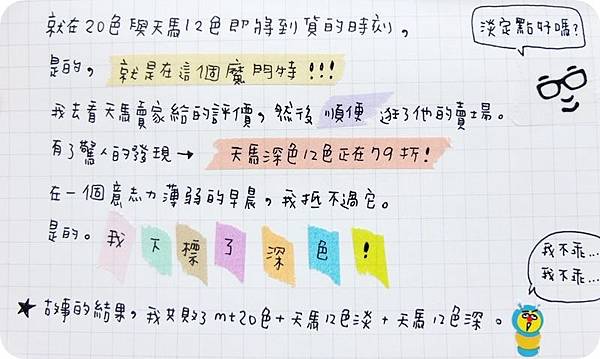 就在20色與天馬12色即將到貨的時刻,
淡定點好嗎?
是的, 就是在這個魔鬥特!!!
我去看天馬賣家給的評價, 然後 順便 逛了他的賣場。
有了驚人的發現→ 天馬深色12色正在79折!
在一個意志力薄弱的早晨, 我抵不過它。
是的。我下標了深色!
我不乖...
我不乖...
★故事的結果, 我失敗了mt20色+天馬12色淡+天馬12色深。